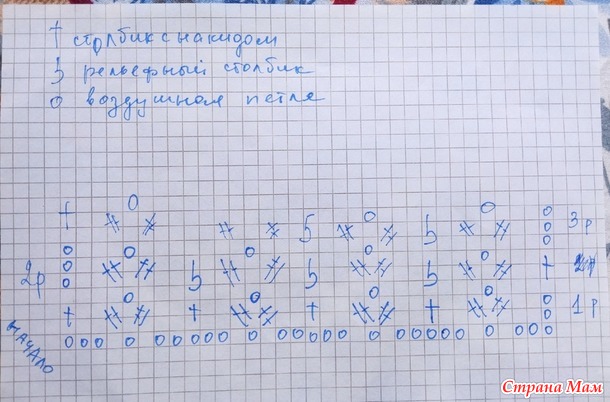 † столбик с накидом
5 рельефный столбик
0 воздушная петля
3 р
2р
2р
1 р
НАЧАЛО
Страна Мам